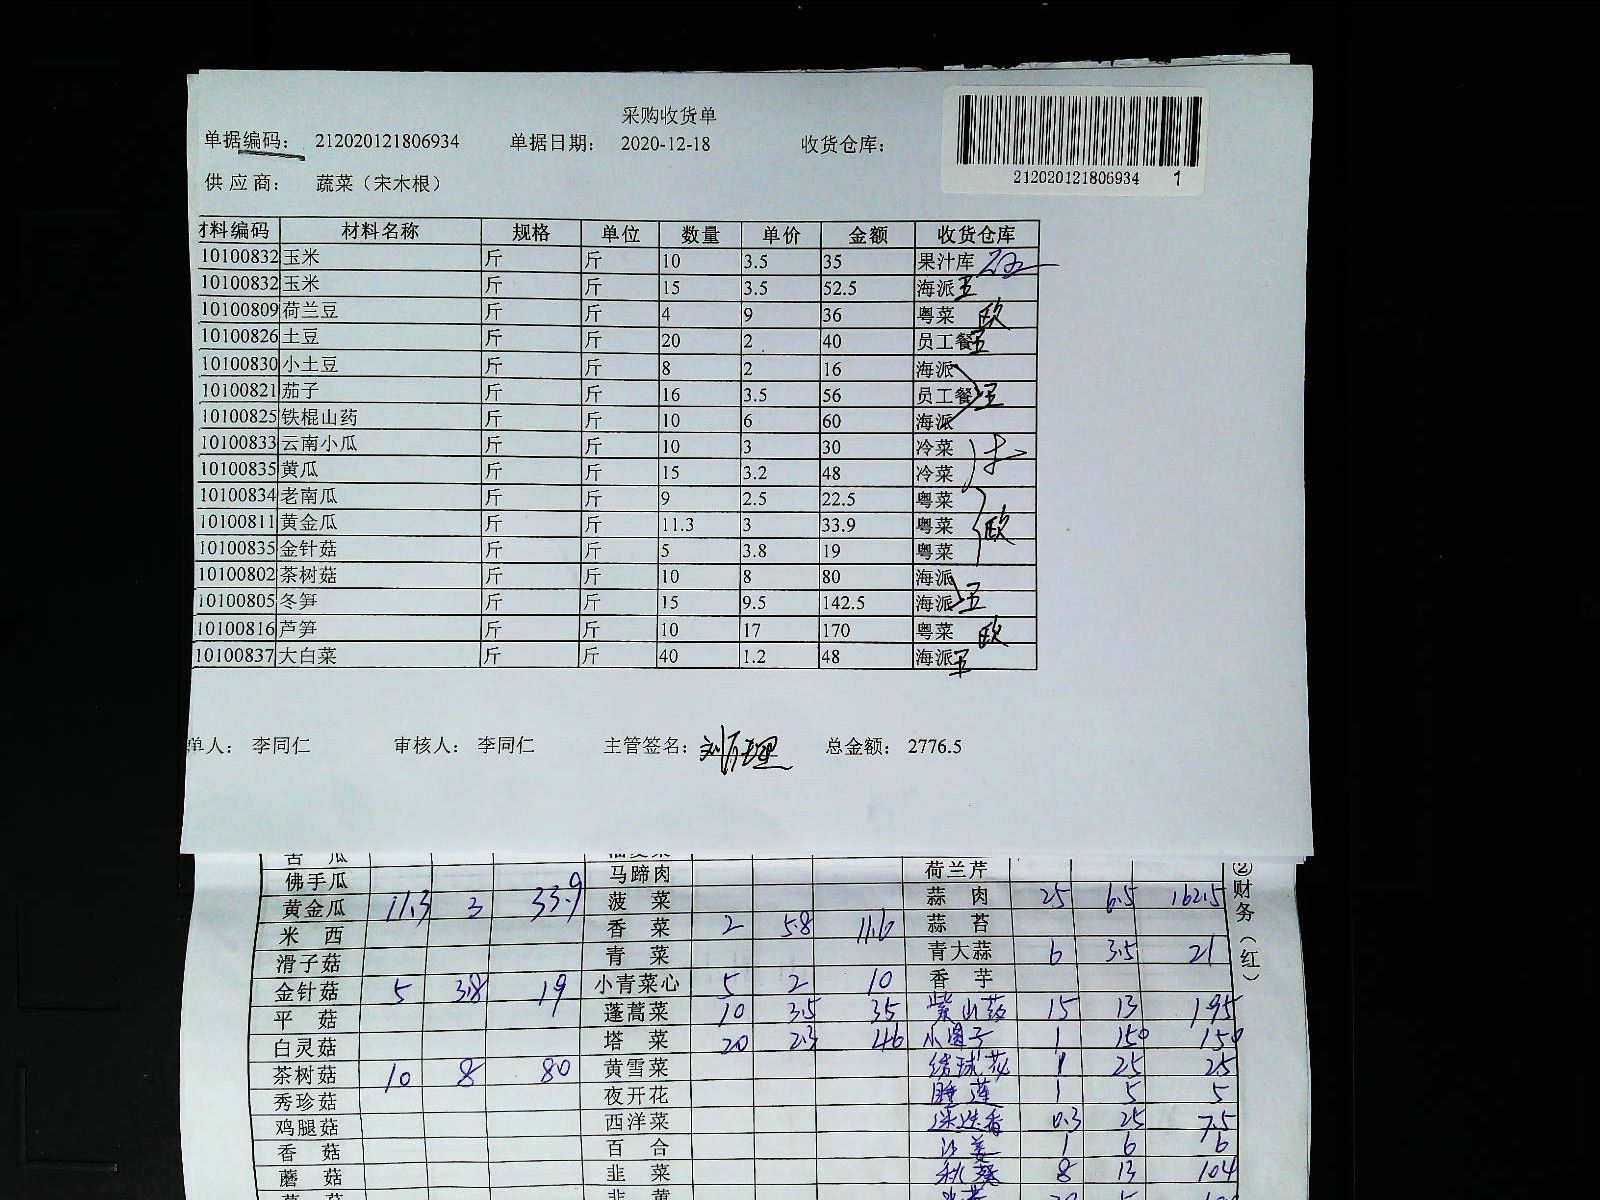 采购收货单
单据编码： 212020121806934 单据日期： 2020-12-18 收货仓库：
212020121806934 1
供应商： 蔬菜（宋木根）
材料编码 材料名称 规格 单位 数量 单价 金额 收货仓库
10100832 玉米 斤 斤 10 3.5 35 果汁库
10100832 玉米 斤 斤 15 3.5 52.5 海派 王
10100809 荷兰豆 斤 斤 4 9 36 粤菜 欧
10100826 土豆 斤 斤 20 2 40 员工餐 王
10100830 小土豆 斤 斤 8 2 16 海派
10100821 茄子 斤 斤 16 3.5 56 员工餐 王
10100825 铁棍山药 斤 斤 10 6 60 海派
10100833 云南小瓜 斤 斤 10 3 30 冷菜
10100835 黄瓜 斤 斤 15 3.2 48 冷菜
10100834 老南瓜 斤 斤 9 2.5 22.5 粤菜
10100811 黄金瓜 斤 斤 11.3 3 33.9 粤菜 欧
10100835 金针菇 斤 斤 5 3.8 19 粤菜
10100802 茶树菇 斤 斤 10 8 80 海派
10100805 冬笋 斤 斤 15 9.5 142.5 海派 王
10100816 芦笋 斤 斤 10 17 170 粤菜 欧
10100837 大白菜 斤 斤 40 1.2 48 海派 王
单人： 李同仁 审核人： 李同仁 主管签名： 总金额： 2776.5
苦 瓜
佛手瓜 马蹄肉 荷兰芹
黄金瓜 11.3 3 33.9 菠 菜 蒜 肉 25 6.5 162.5
米 西 香 菜 2 5.8 11.6 蒜 苔
滑子菇 青 菜 青大蒜 6 3.5 21
金针菇 5 3.8 19 小青菜心 5 2 10 香 芋
平 菇 蓬蒿菜 10 3.5 35 紫山药 15 13 195
白灵菇 塔 菜 20 2.3 46 小圆子 1 150 150
茶树菇 10 8 80 黄雪菜 绣球花 1 25 25
秀珍菇 夜开花 睡莲 1 5 5
鸡腿菇 西洋菜 迷迭香 0.3 25 7.5
香 菇 百 合 沙姜 1 6 6
蘑 菇 韭 菜 秋葵 8 13 104
韭 黄
②财务（红）